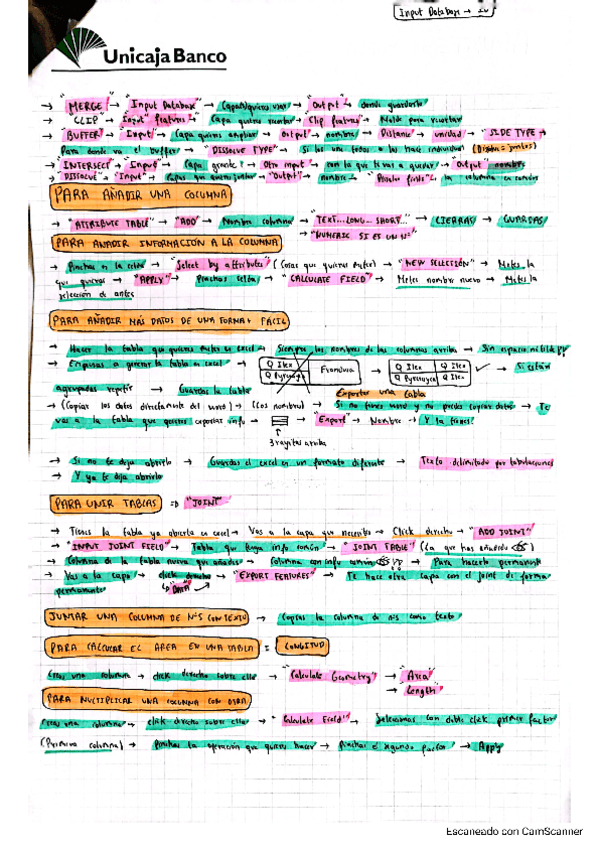 Input Database →
Unicaja Banco
→ "MERGE" → "Input Database" → Capas quieres unir → "Output" → donde guardarlo
→ CLIP → "Input" features → Capa quieres recortar → Clip features → Molde para recortar
→ "BUFFER" → "Input" → Capa quieres ampliar → Output → nombre → Distance → unidad → SIDE TYPE →
Para donde va el buffer → "DISSOLVE TYPE" → Si los une todos o los hace individual
→ INTERSECT → "Input" → Capa grande? → Otro input → con lo que te vas a quedar → "Output" nombre
→ DISSOLVE → "Input" → Capas que quiero juntar → "Output" → nombre → la columna en común
PARA AÑADIR UNA COLUMNA
→ "ATTRIBUTE TABLE" → "ADD" → Nombre columna → "TEXT... LONG... SHORT..." → CIERRAS → GUARDAS
→ "NUMERIC SI ES UN Nº"
PARA AÑADIR INFORMACIÓN A LA COLUMNA
→ Pinchas en la celda → "Select by attributes" (Cosas que quieras meter) → "NEW SELECTION" → Metes la
que quieras → "APPLY" → Pinchas celda → "CALCULATE FIELD" → Metes nombre nuevo → Metes la
selección de antes
PARA AÑADIR MÁS DATOS DE UNA FORMA + FÁCIL
→ Hacer la tabla que quieres meter en excel → Siempre los nombres de las columnas arriba → Sin espacio ni tilde
→ Empiezas a generar la tabla en excel →
Q Ilex
Q Pyrenayca
Francisco
→
Q Ilex
Q Ilex
Q Pyrenayca
Q Ilex
→ Si están
agrupadas repetir → Guardas la tabla
Exportar una tabla
→ (Copiar los datos directamente del word) → (Los nombres) → Si no tienes word y no puedes copiar datos → Te
vas a la tabla que quieres exportar info → → "Export" → Nombre → Y la tienes!
3 rayitas arriba
→ Si no te deja abrirlo → Guardas el excel en un formato diferente → Texto delimitado por tabulaciones
→ Y ya te deja abrirlo
PARA UNIR TABLAS ⇒ "JOINT"
→ Tienes la tabla ya abierta en excel → Vas a la capa que necesites → Click derecho → "ADD JOINT"
→ "INPUT JOINT FIELD" → Tabla que tenga info común → "JOINT TABLE" (La que has añadido)
→ Columna de la tabla nueva que añades → Columna con info común → Para hacerlo permanente
→ Vas a la capa → click derecho → "EXPORT FEATURES" → Te hace otra capa con el joint de forma
permanente
↳ "DATA"
JUNTAR UNA COLUMNA DE NºS CON TEXTO → Copias la columna de nºs como texto
PARA CALCULAR EL ÁREA EN UNA TABLA = LONGITUD
Creas una columna → click derecho sobre ella → "Calculate Geometry" → "Area"
→ Length
PARA MULTIPLICAR UNA COLUMNA CON OTRA
Creas una columna → click derecho sobre ella → "Calculate Field" → Seleccionas con doble click primer factor
(Primera columna) → Pinchas la operación que quieres hacer → Pinchas el segundo factor → Apply
Escaneado con CamScanner